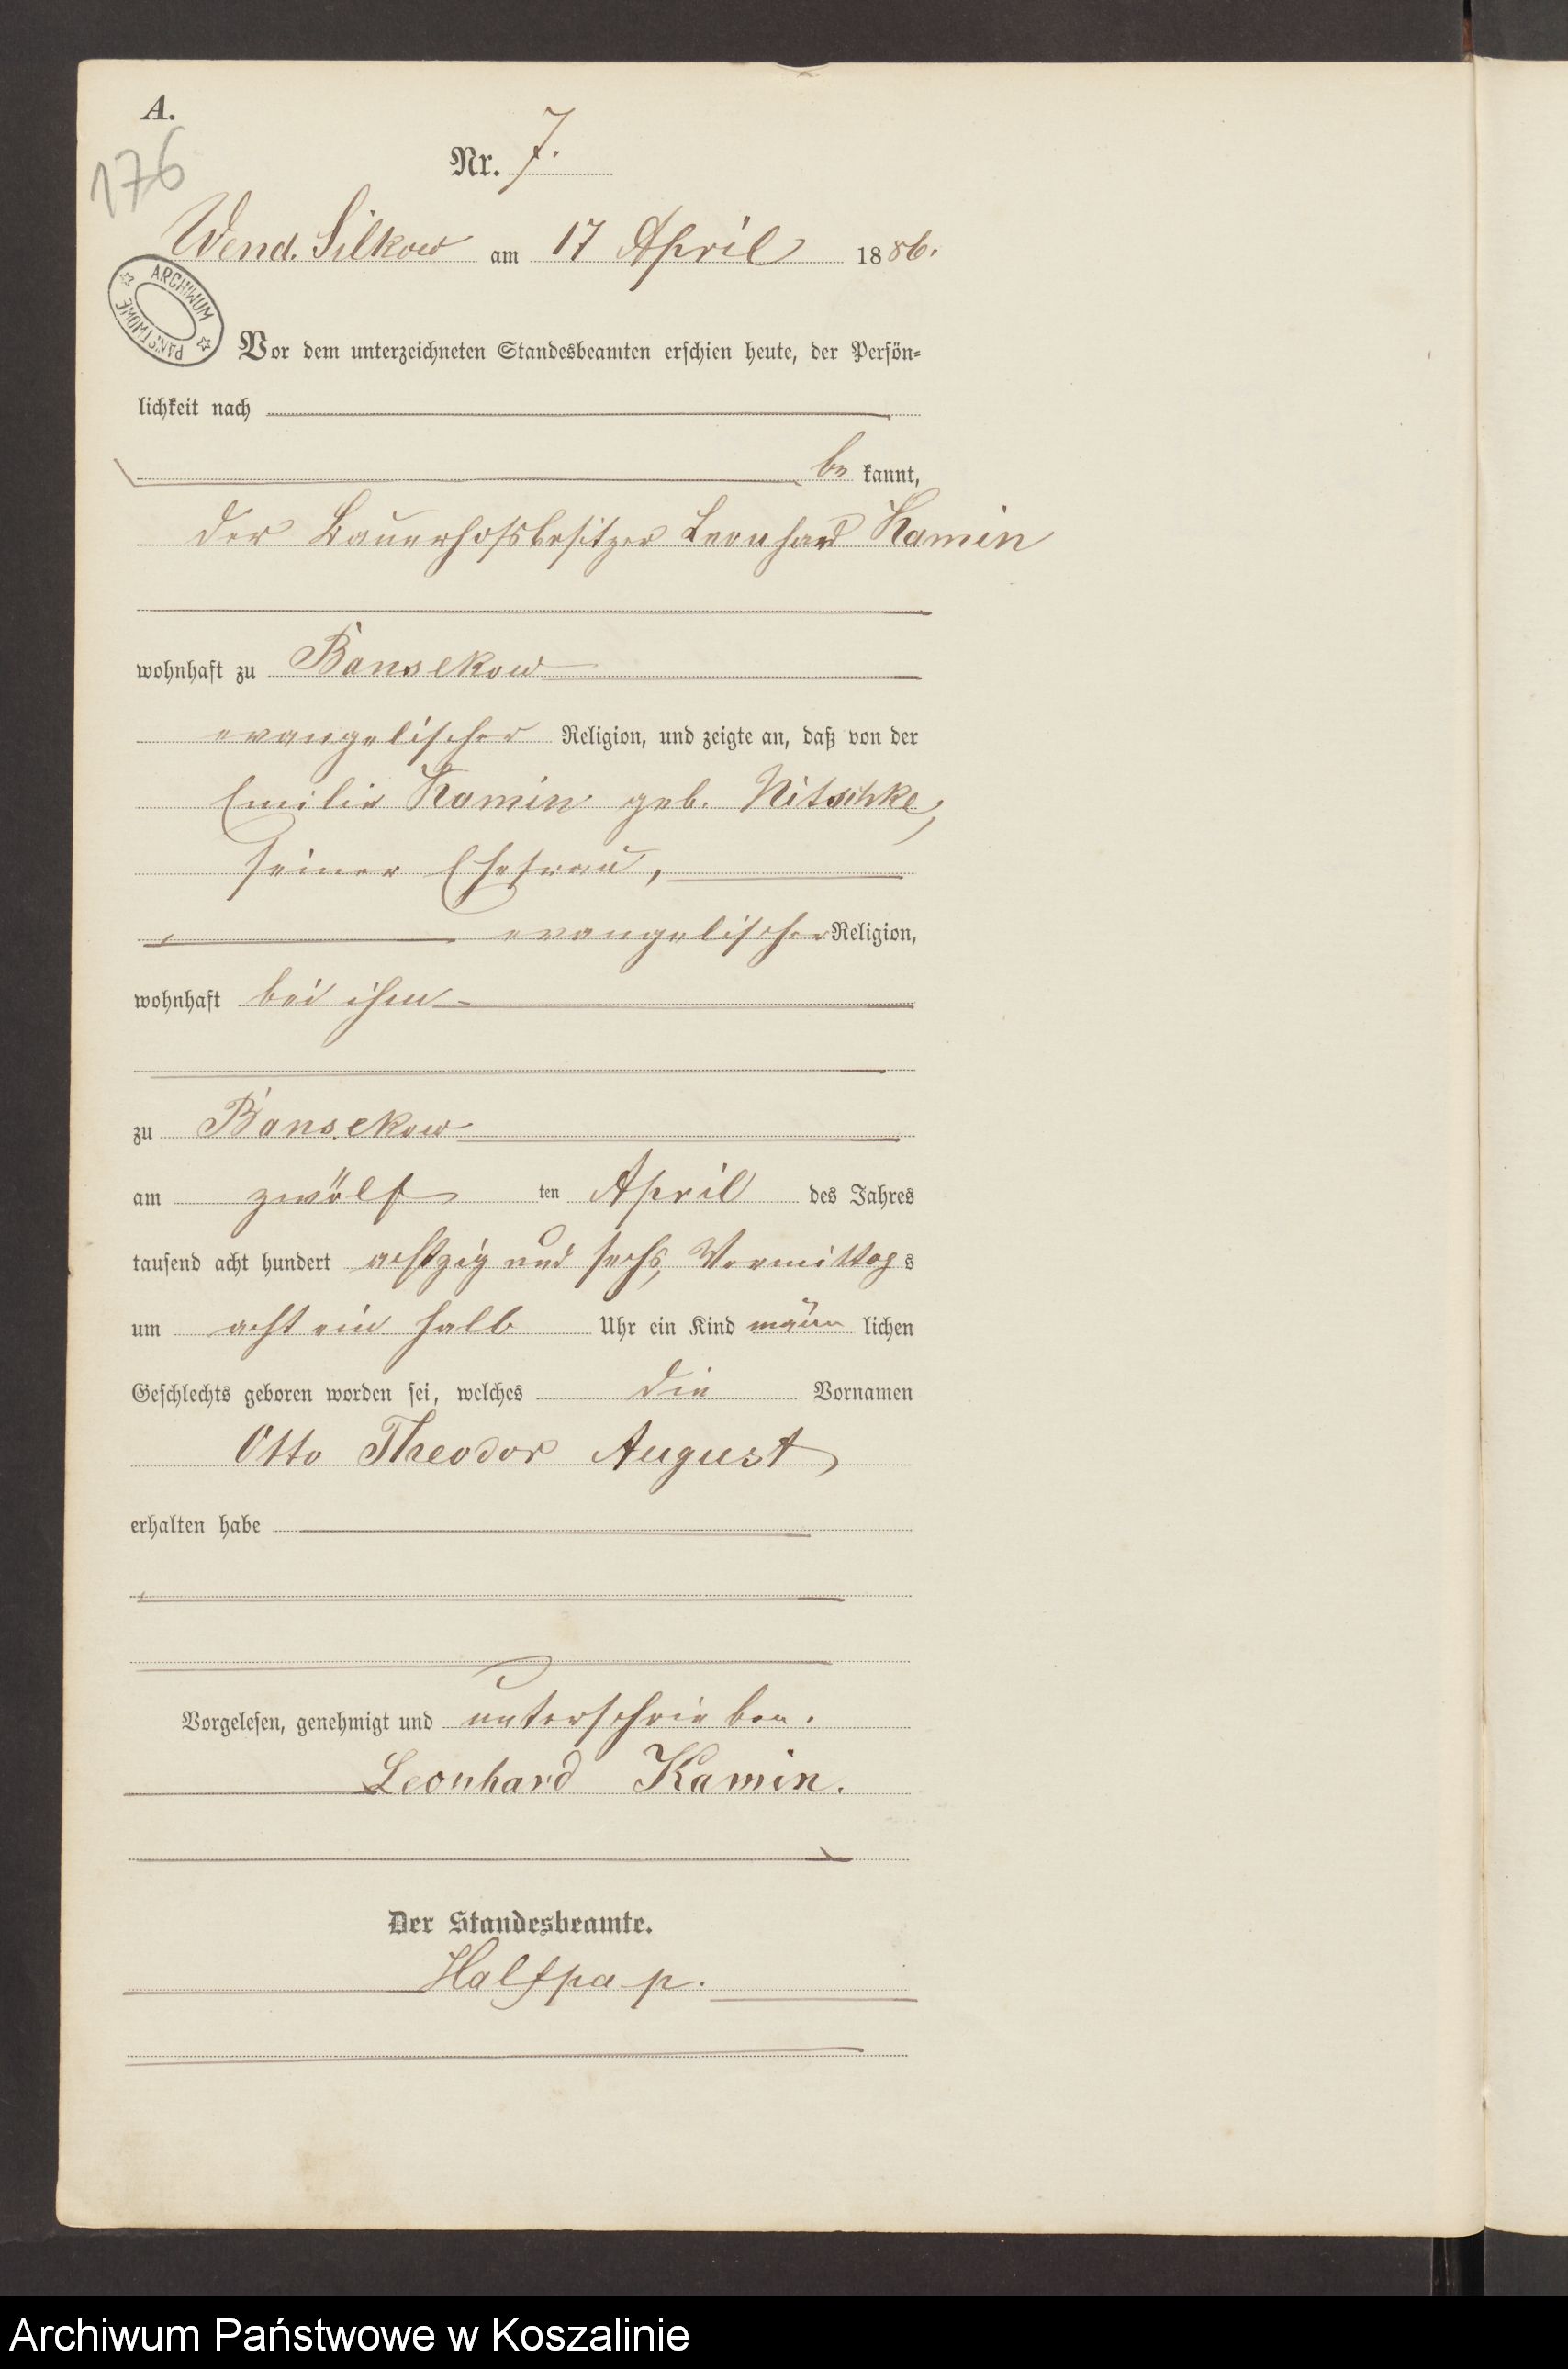 A.
176
Nr. 7.
Wend. Silkow am 17 April 1886.
ARCHIWUM PAŃSTWOWE
Vor dem unterzeichneten Standesbeamten erschien heute, der Persön=
lichkeit nach
be kannt,
der Bauerhofsbesitzer Leonhard Kamin
wohnhaft zu Bansekow
evangelischer Religion, und zeigte an, daß von der
Emilie Kamin geb. Nitschke,
seiner Ehefrau,
evangelischer Religion,
wohnhaft bei ihm
zu Bansekow
am zwölf ten April des Jahres
tausend acht hundert achtzig und sechs, Vormittags
um acht ein halb Uhr ein Kind männ lichen
Geschlechts geboren worden sei, welches die Vornamen
Otto Theodor August
erhalten habe
Vorgelesen, genehmigt und unterschrieben.
Leonhard Kamin.
Der Standesbeamte.
Halfpap.
Archiwum Państwowe w Koszalinie